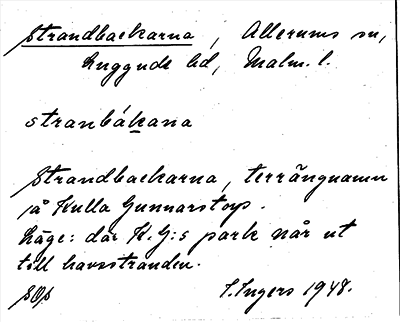 Strandbackarna, Allerums sn,
Luggude hd, Malm. l.
stranbákana
Strandbackarna, terrängnamn
på Kulla Gunnarstorp.
Läge: där K. G:s park når ut
till havsstranden.
I. Ingers 1948.